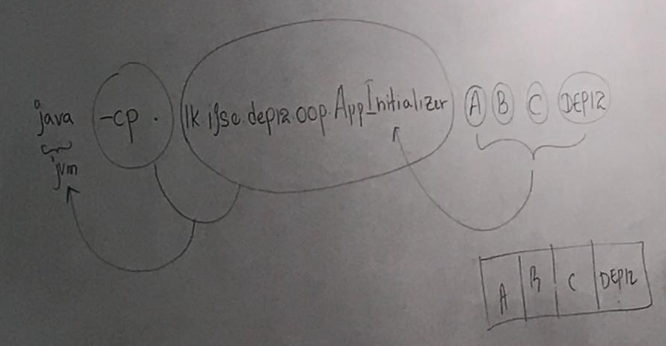 java -cp . lk.ijse.dep12.oop.AppInitializer A B C DEP12
jvm
A B C DEP12